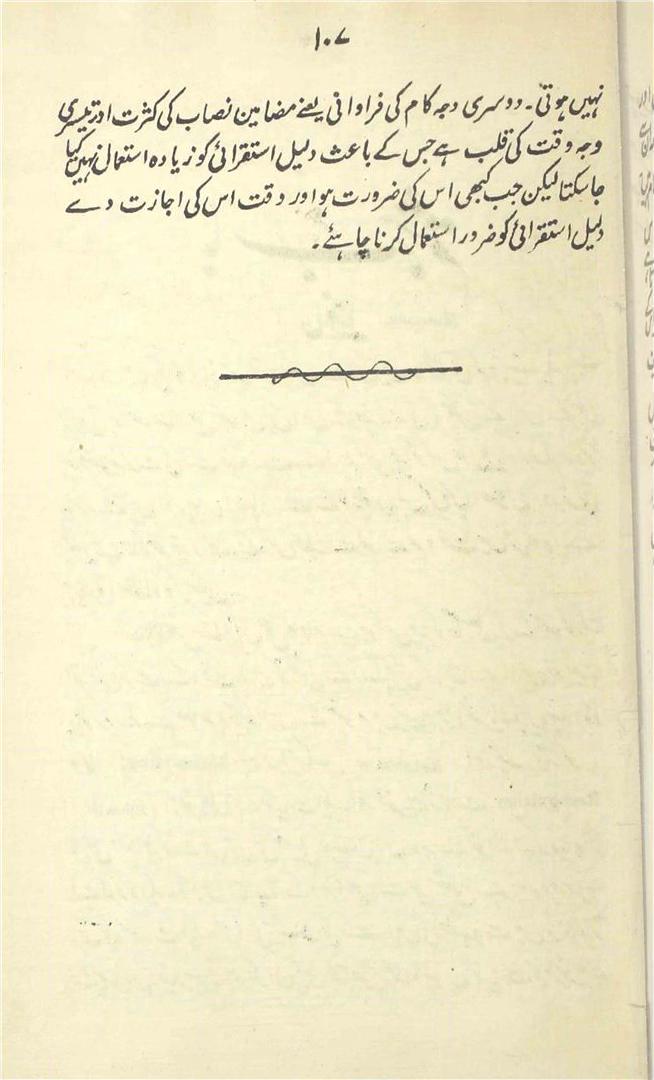 ۱۰۷
نہیں ہوتی۔ دوسری وجہ کام کی فراوانی یعنے مضامین نصاب کی کثرت اور تیسری
وجہ وقت کی قلت ہے جس کے باعث دلیل استقرائی کو زیادہ استعمال نہیں کیا
جا سکتا لیکن جب کبھی اس کی ضرورت ہو اور وقت اس کی اجازت دے
دلیل استقرائی کو ضرور استعمال کرنا چاہئے۔